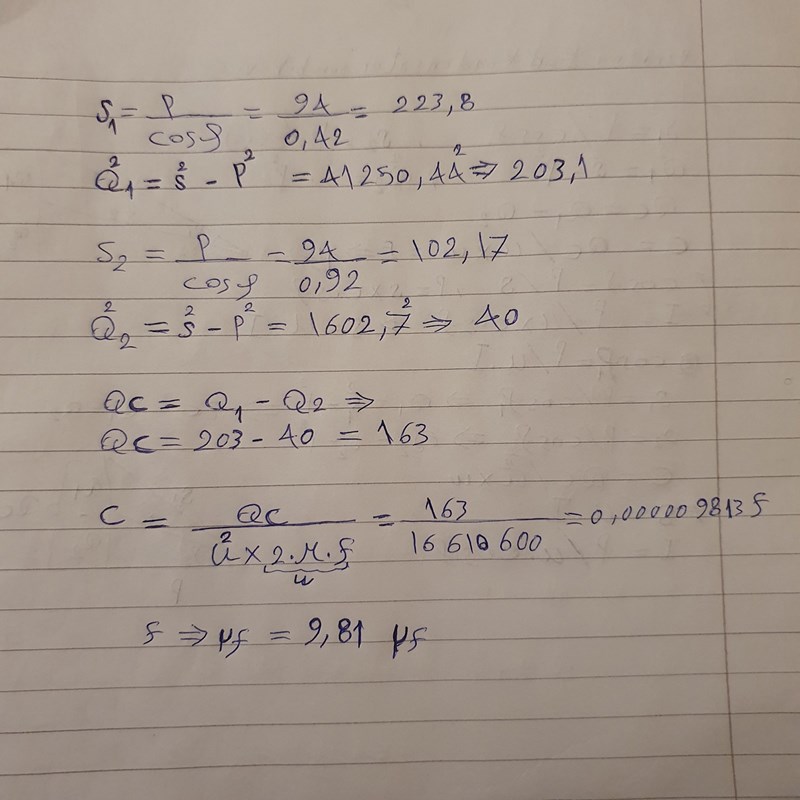 S₁ = P / cosφ = 94 / 0,42 = 223,8
Q₁² = S² - P² = 41250,44² ⇒ 203,1
S₂ = P / cosφ = 94 / 0,92 = 102,17
Q₂² = S² - P² = 1602,7² ⇒ 40
QC = Q₁ - Q₂ ⇒
QC = 203 - 40 = 163
C = QC / U² × 2.π.f = 163 / 16610600 = 0,000009813 f
ω
f ⇒ µf = 9,81 µf